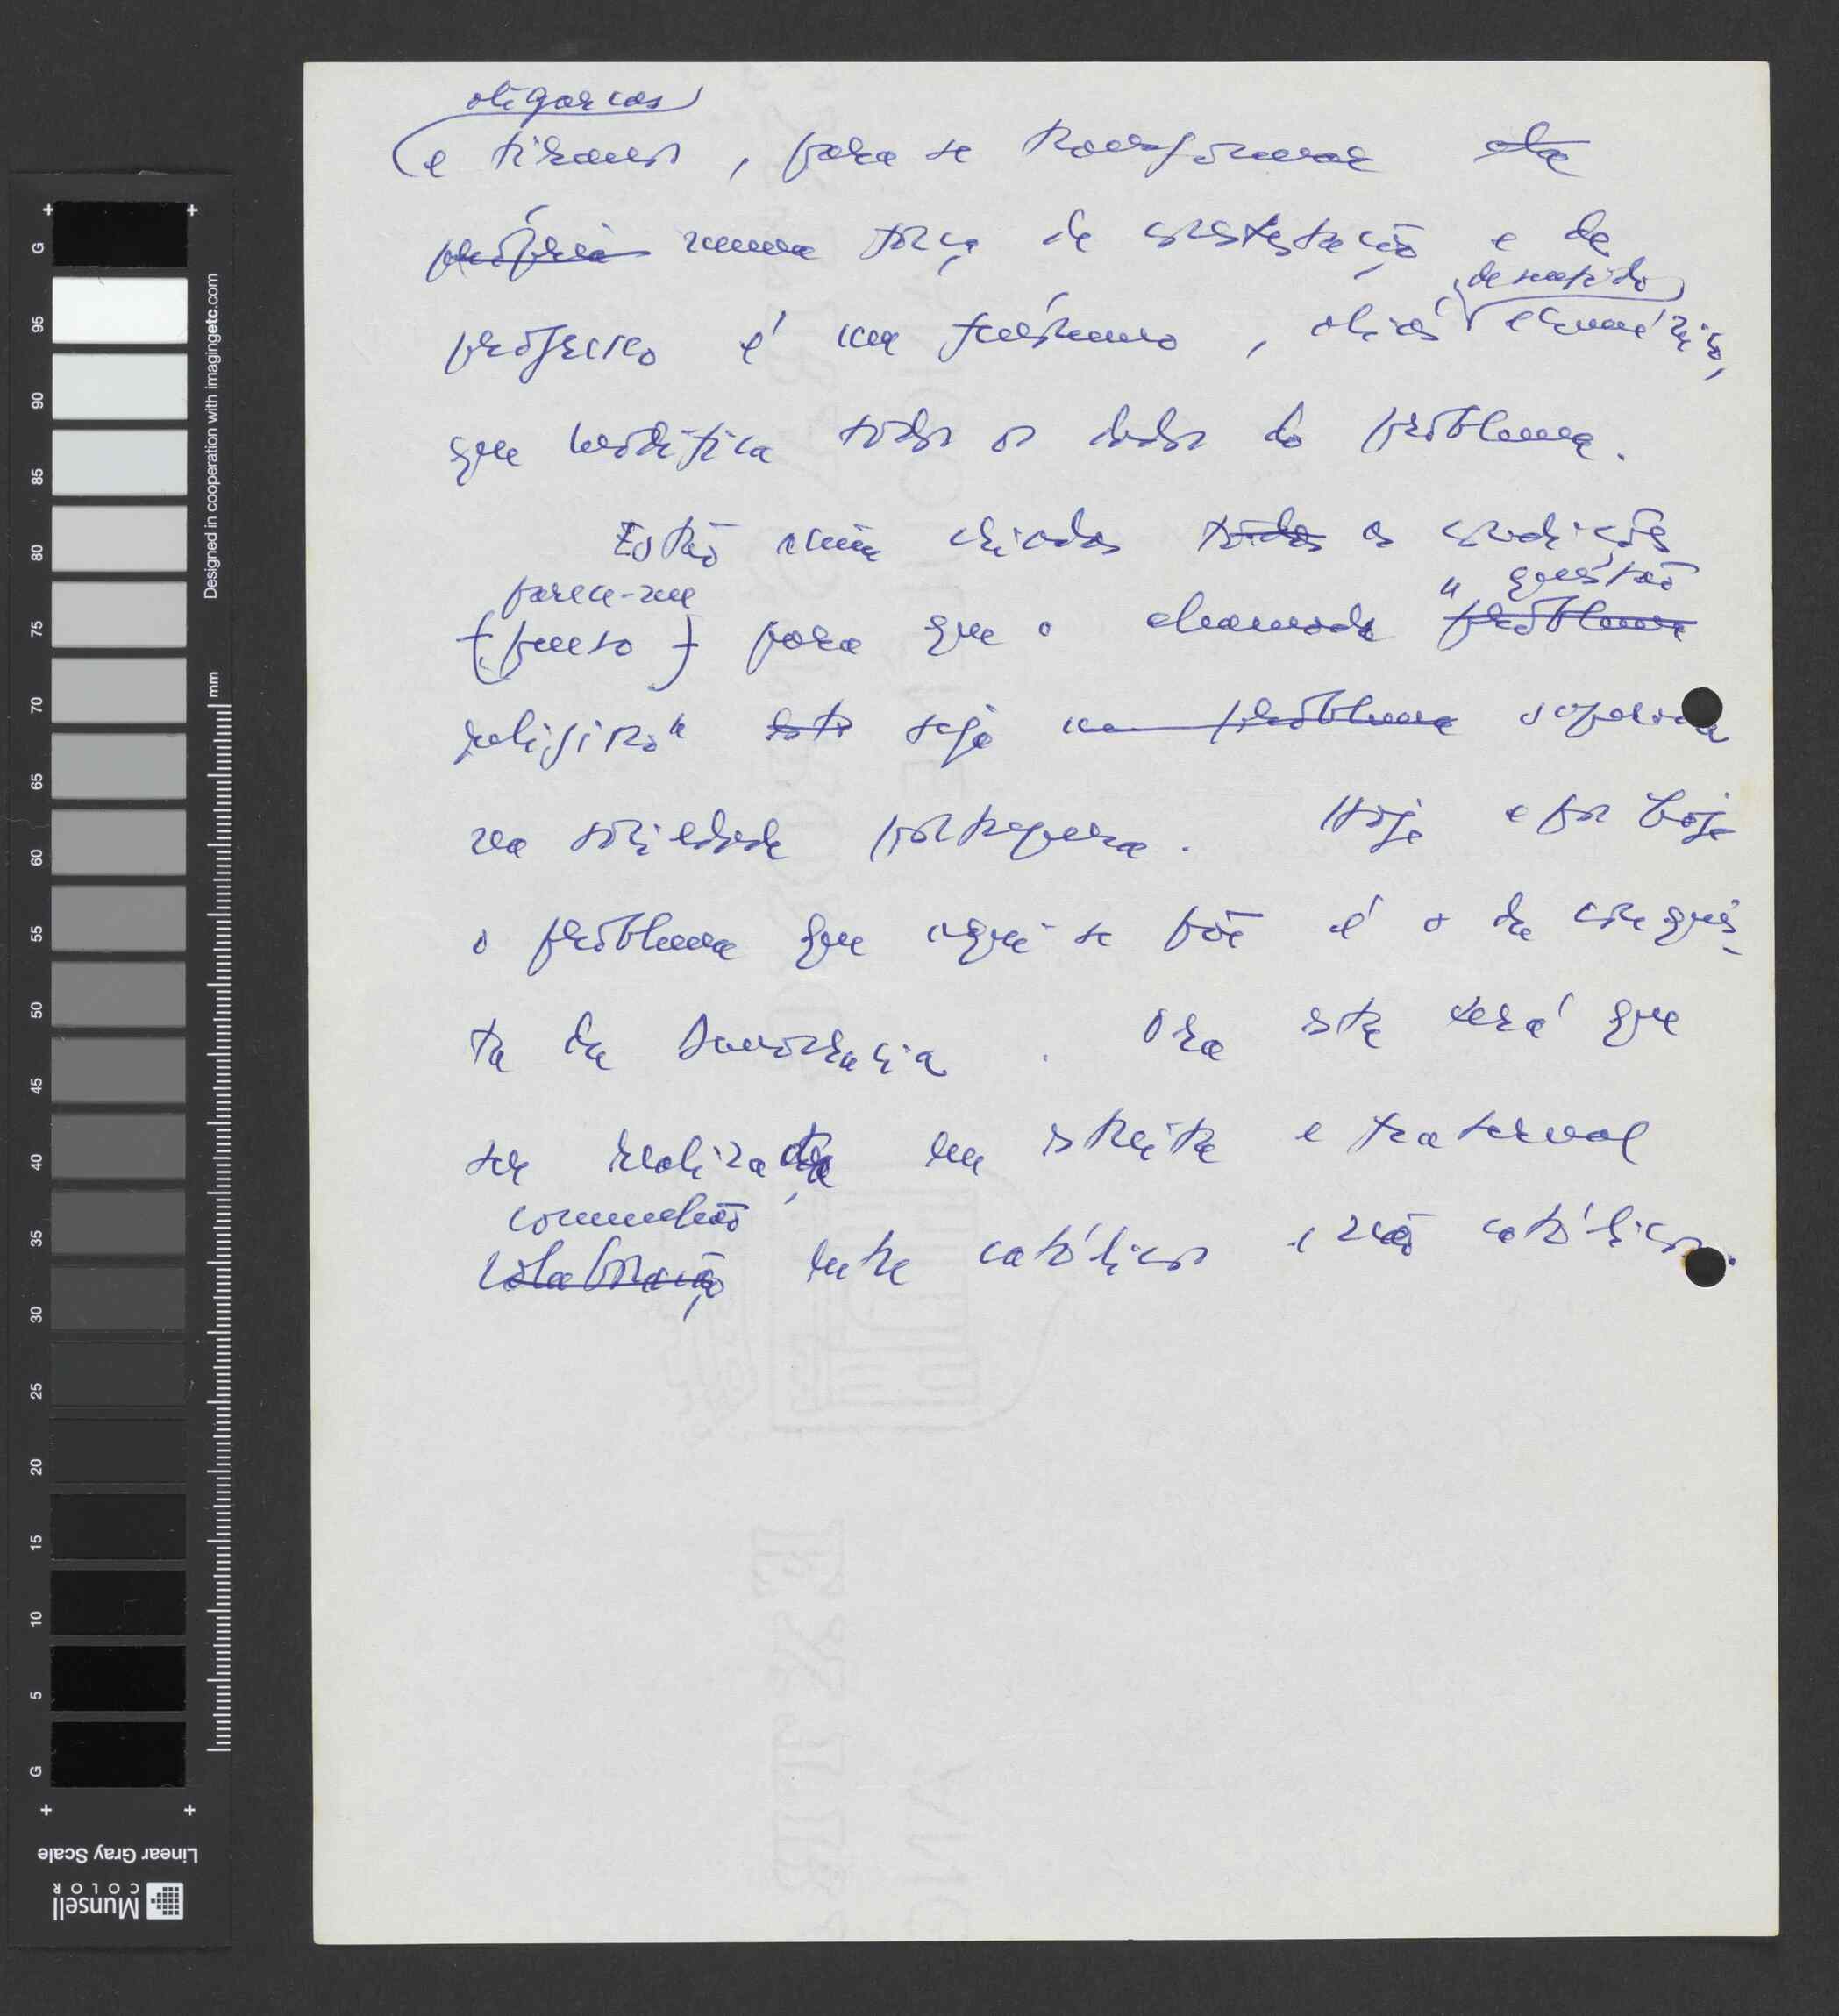 oligarcas
e tiranos, para se transformar ela
própria numa força de contestação e de
de sentido
progresso é um fenómeno, aliás ecuménico,
que modifica todos os dados do problema.
Estão assim criadas todas as condições
parece-me
(penso) para que a chamada "questão
problema
religiosa" este seja um problema superada
na sociedade portuguesa. Hoje e por hoje
o problema que aqui se põe é o da conquis-
ta da Democracia. Ora esta terá que
ser realizada em estreita e fraternal
comunhão
colaboração entre católicos e não católicos.
G 95 90 85 80 75 70 65 60 55 50 45 40 35 30 25 20 15 10 5 G
mm
Designed in cooperation with imagingetc.com
Linear Gray Scale
Munsell
COLOR